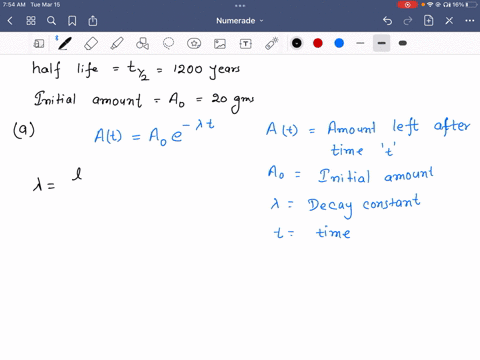 7:54 AM Tue Mar 15
16%
Numerade
half life = t½ = 1200 years
Initial amount = A₀ = 20 gms
(a) A(t) = A₀ e^{-λt}
A(t) = Amount left after time 't'
A₀ = Initial amount
λ = Decay constant
t = time
λ = l